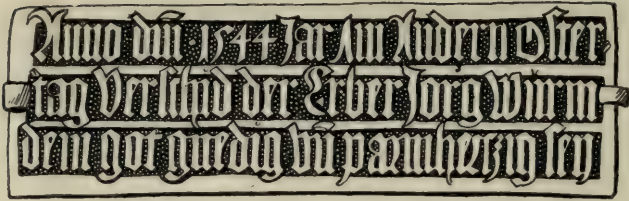 Anno dm̄ · 1544 Jar Am Andern Oster
tag Verschid der Erber Jorg Wurm
dem got gnedig vn̄ parmherzig sey